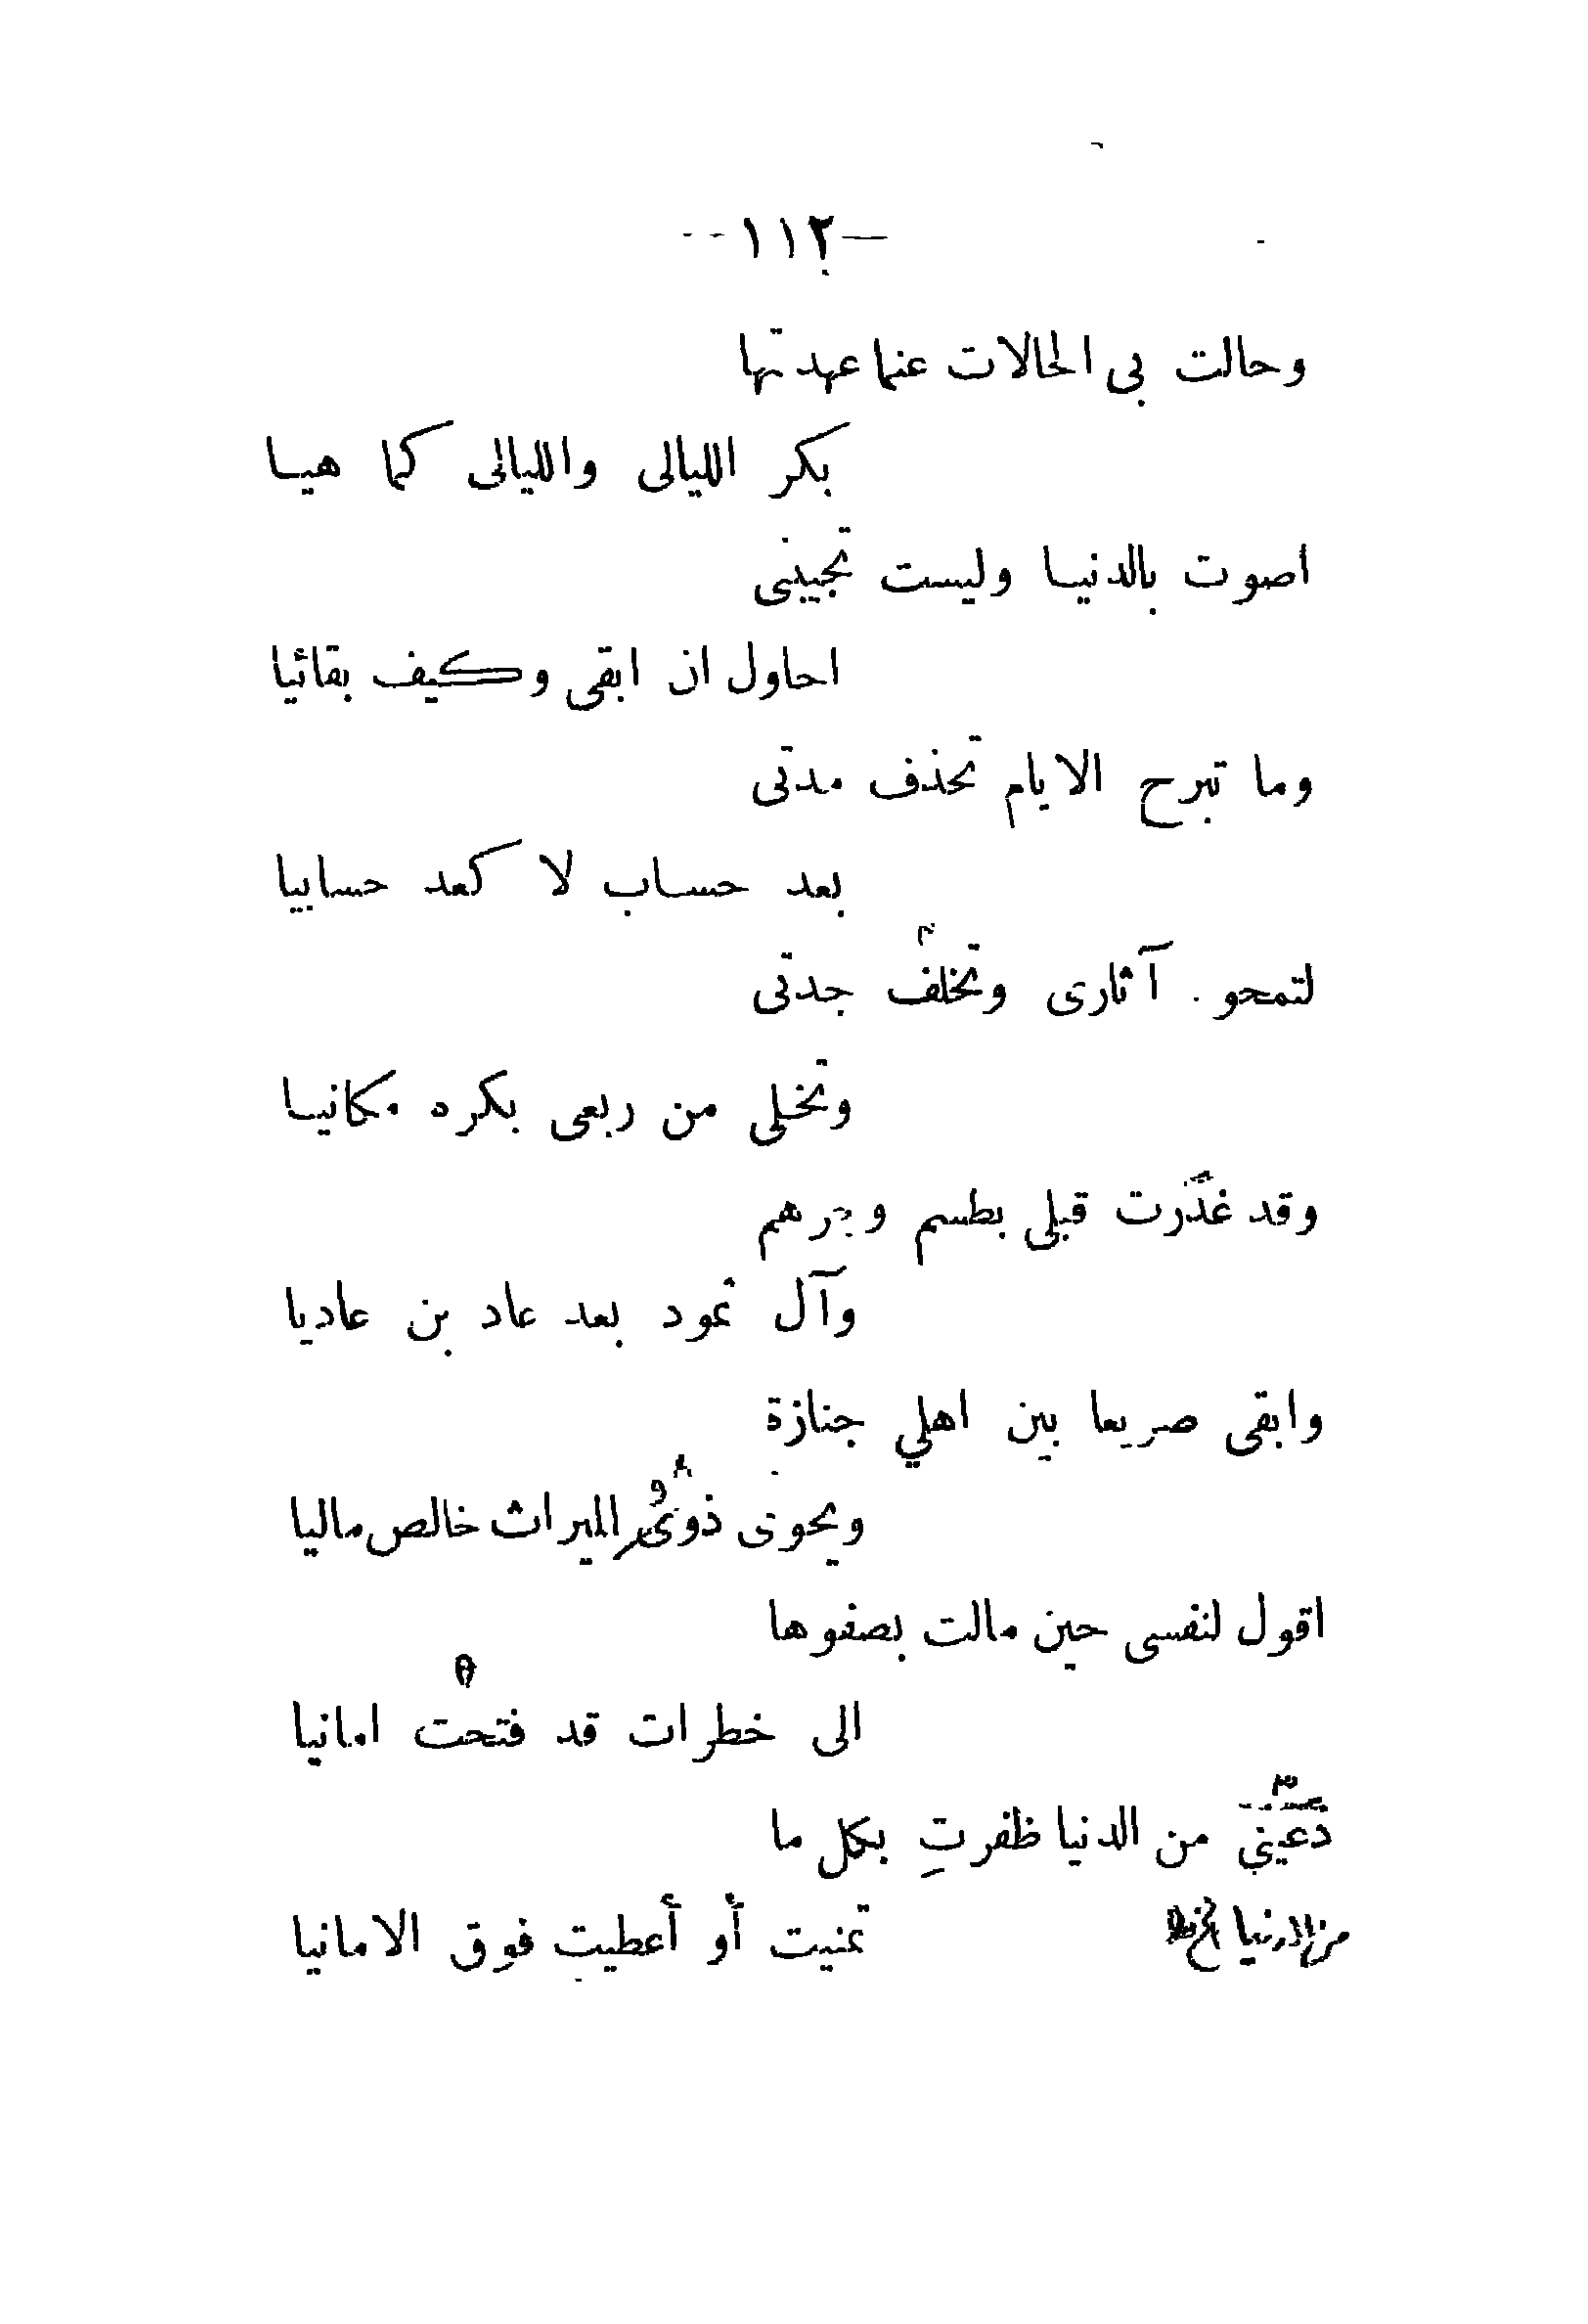 —١١٢--
وحالت بى الحالات عنما عهدتها
بكر الليالى والليالى كما هيا
اصوت بالدنيا وليست تجيبنى
احاول ان ابقى وكيف بقائيا
وما تبرح الايام تحذف مدتى
بعد حساب لا كعد حسابيا
لتمحو آثارى وتخلف جدتى
وتخلى من ربعى بكره مكانيا
وقد غدرت قبلى بطسم وجرهم
وآل ثمود بعد عاد بن عاديا
وابقى صريعا بين اهلي جنازة
ويحوى ذوى الميراث خالص ماليا
اقول لنفسى حين مالت بصفوها
الى خطرات قد فتحت امانيا
من الدنيا ظفرتِ بكل ما
تمنيت أو أعطيت فوق الامانيا
من الدنيا